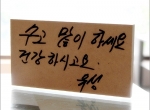 수고 많이 하세요
건강하시고요.